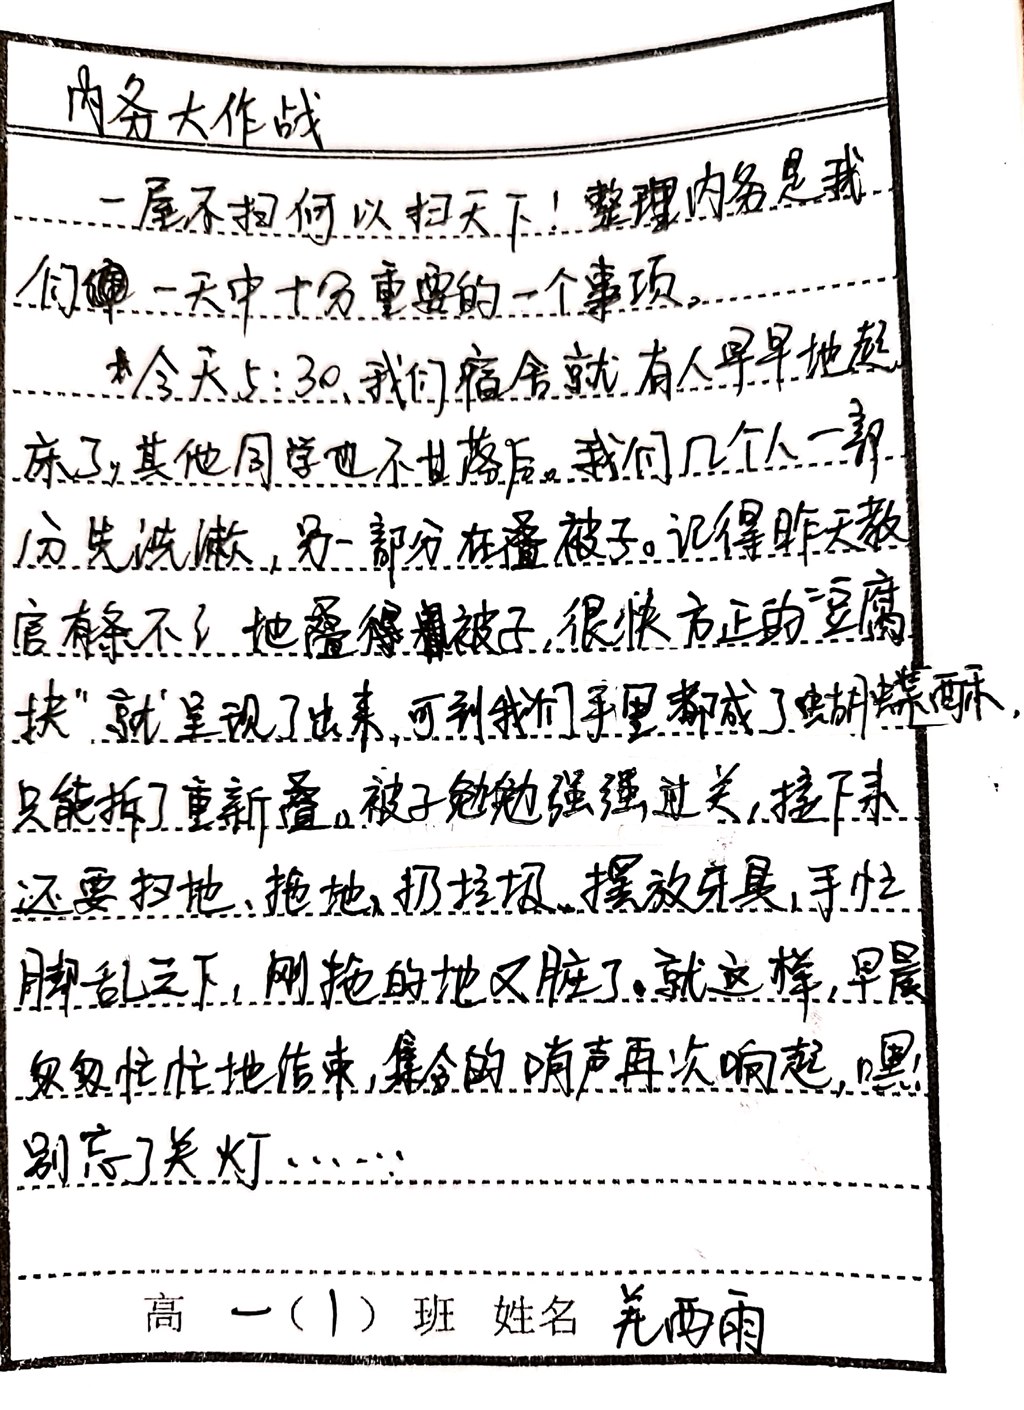 内务大作战
一屋不扫何以扫天下！整理内务是我
们一天中十分重要的一个事项。
今天5:30、我们宿舍就有人早早地起
床了，其他同学也不甘落后。我们几个人一部
份先洗漱，另一部分在叠被子。记得昨天教
官有条不乱地叠得着被子，很快方正的“豆腐
块”就呈现了出来，可到我们手里都成了蝴蝶酥，
只能拆了重新叠。被子勉勉强强过关，接下来
还要扫地、拖地、扔垃圾、摆放牙具，手忙
脚乱之下，刚拖的地又脏了。就这样，早晨
匆匆忙忙地结束，集合的哨声再次响起，嘿！
别忘了关灯……
高一（1）班 姓名 西雨